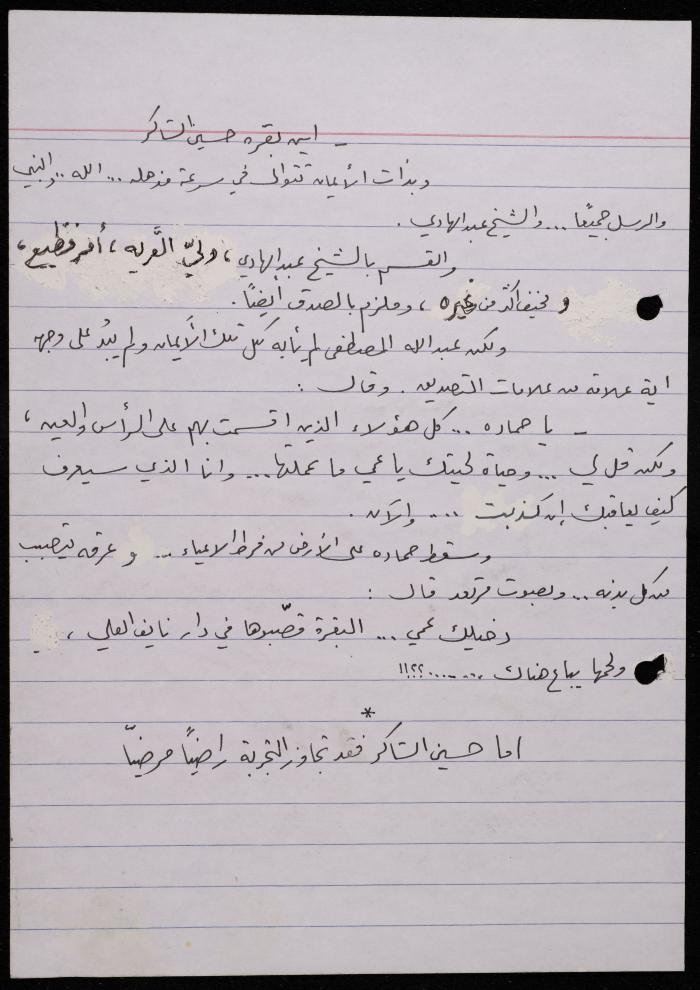 - اين بقره حسين الشاكر
وبدأت الأيمان تتوالى في سرعة مذهله ... الله .. والنبي
والرسل جميعًا ... والشيخ عبد الهادي .
والقسم بالشيخ عبد الهادي ، وليّ القريه ، أمر فظيع ،
و مخيف أكثر من غيره ، وملزم بالصدق ايضًا .
ولكن عبد الله المصطفى لم يأبه لكل تلك الأيمان ولم يبدُ على وجهه
اية علامة من علامات التصديق . وقال :
- يا حماده ... كل هؤلاء الذين اقسمت بهم على الرأس والعين ،
ولكن قل لي ... وحياة لحيتك يا عمي ما عملتها ... وانا الذي سيعرف
كيف يعاقبك إن كذبت .... والآن .
وسقط حماده على الأرض من فرط الاعياء ... و عرقه يتصبب
من كل بدنه ... وبصوت مرتعد قال :
دخيلك عمي ... البقرة قصّبوها في دار نايف العلي ،
ولحمها يباع هناك ........؟؟!!
*
اما حسين الشاكر فقد تجاوز التجربة راضيًا مرضيًّا